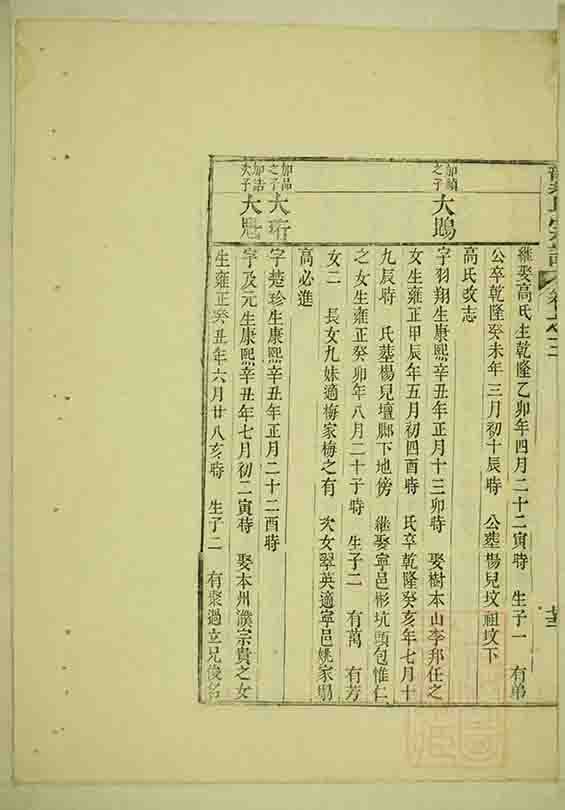 繼娶高氏生乾隆乙卯年四月二十二寅時 生子一 有弟
公卒乾隆癸未年三月初十辰時 公墓楊兒墳祖墳下
高氏改志
加績之子 大鵾
字羽翔生康熙辛丑年正月十三卯時 娶樹本山李邦任之
女生雍正甲辰年五月初四酉時 氏卒乾隆癸亥年七月十
九辰時 氏墓楊兒壇鄺下地傍 繼娶寧邑彬坑頭包惟仁
之女生雍正癸卯年八月二十子時 生子二 有萬 有芳
女二 長女九妹適梅家梅之有 次女翠英適寧邑姚家
高必進
加品之子 大珩
字楚珍生康熙辛丑年正月二十二酉時
加誥次子 大
字及元生康熙辛丑年七月初二寅時 娶本州濮宗貴之女
生雍正癸丑年六月廿八亥時 生子二 有聚過立兄俊名